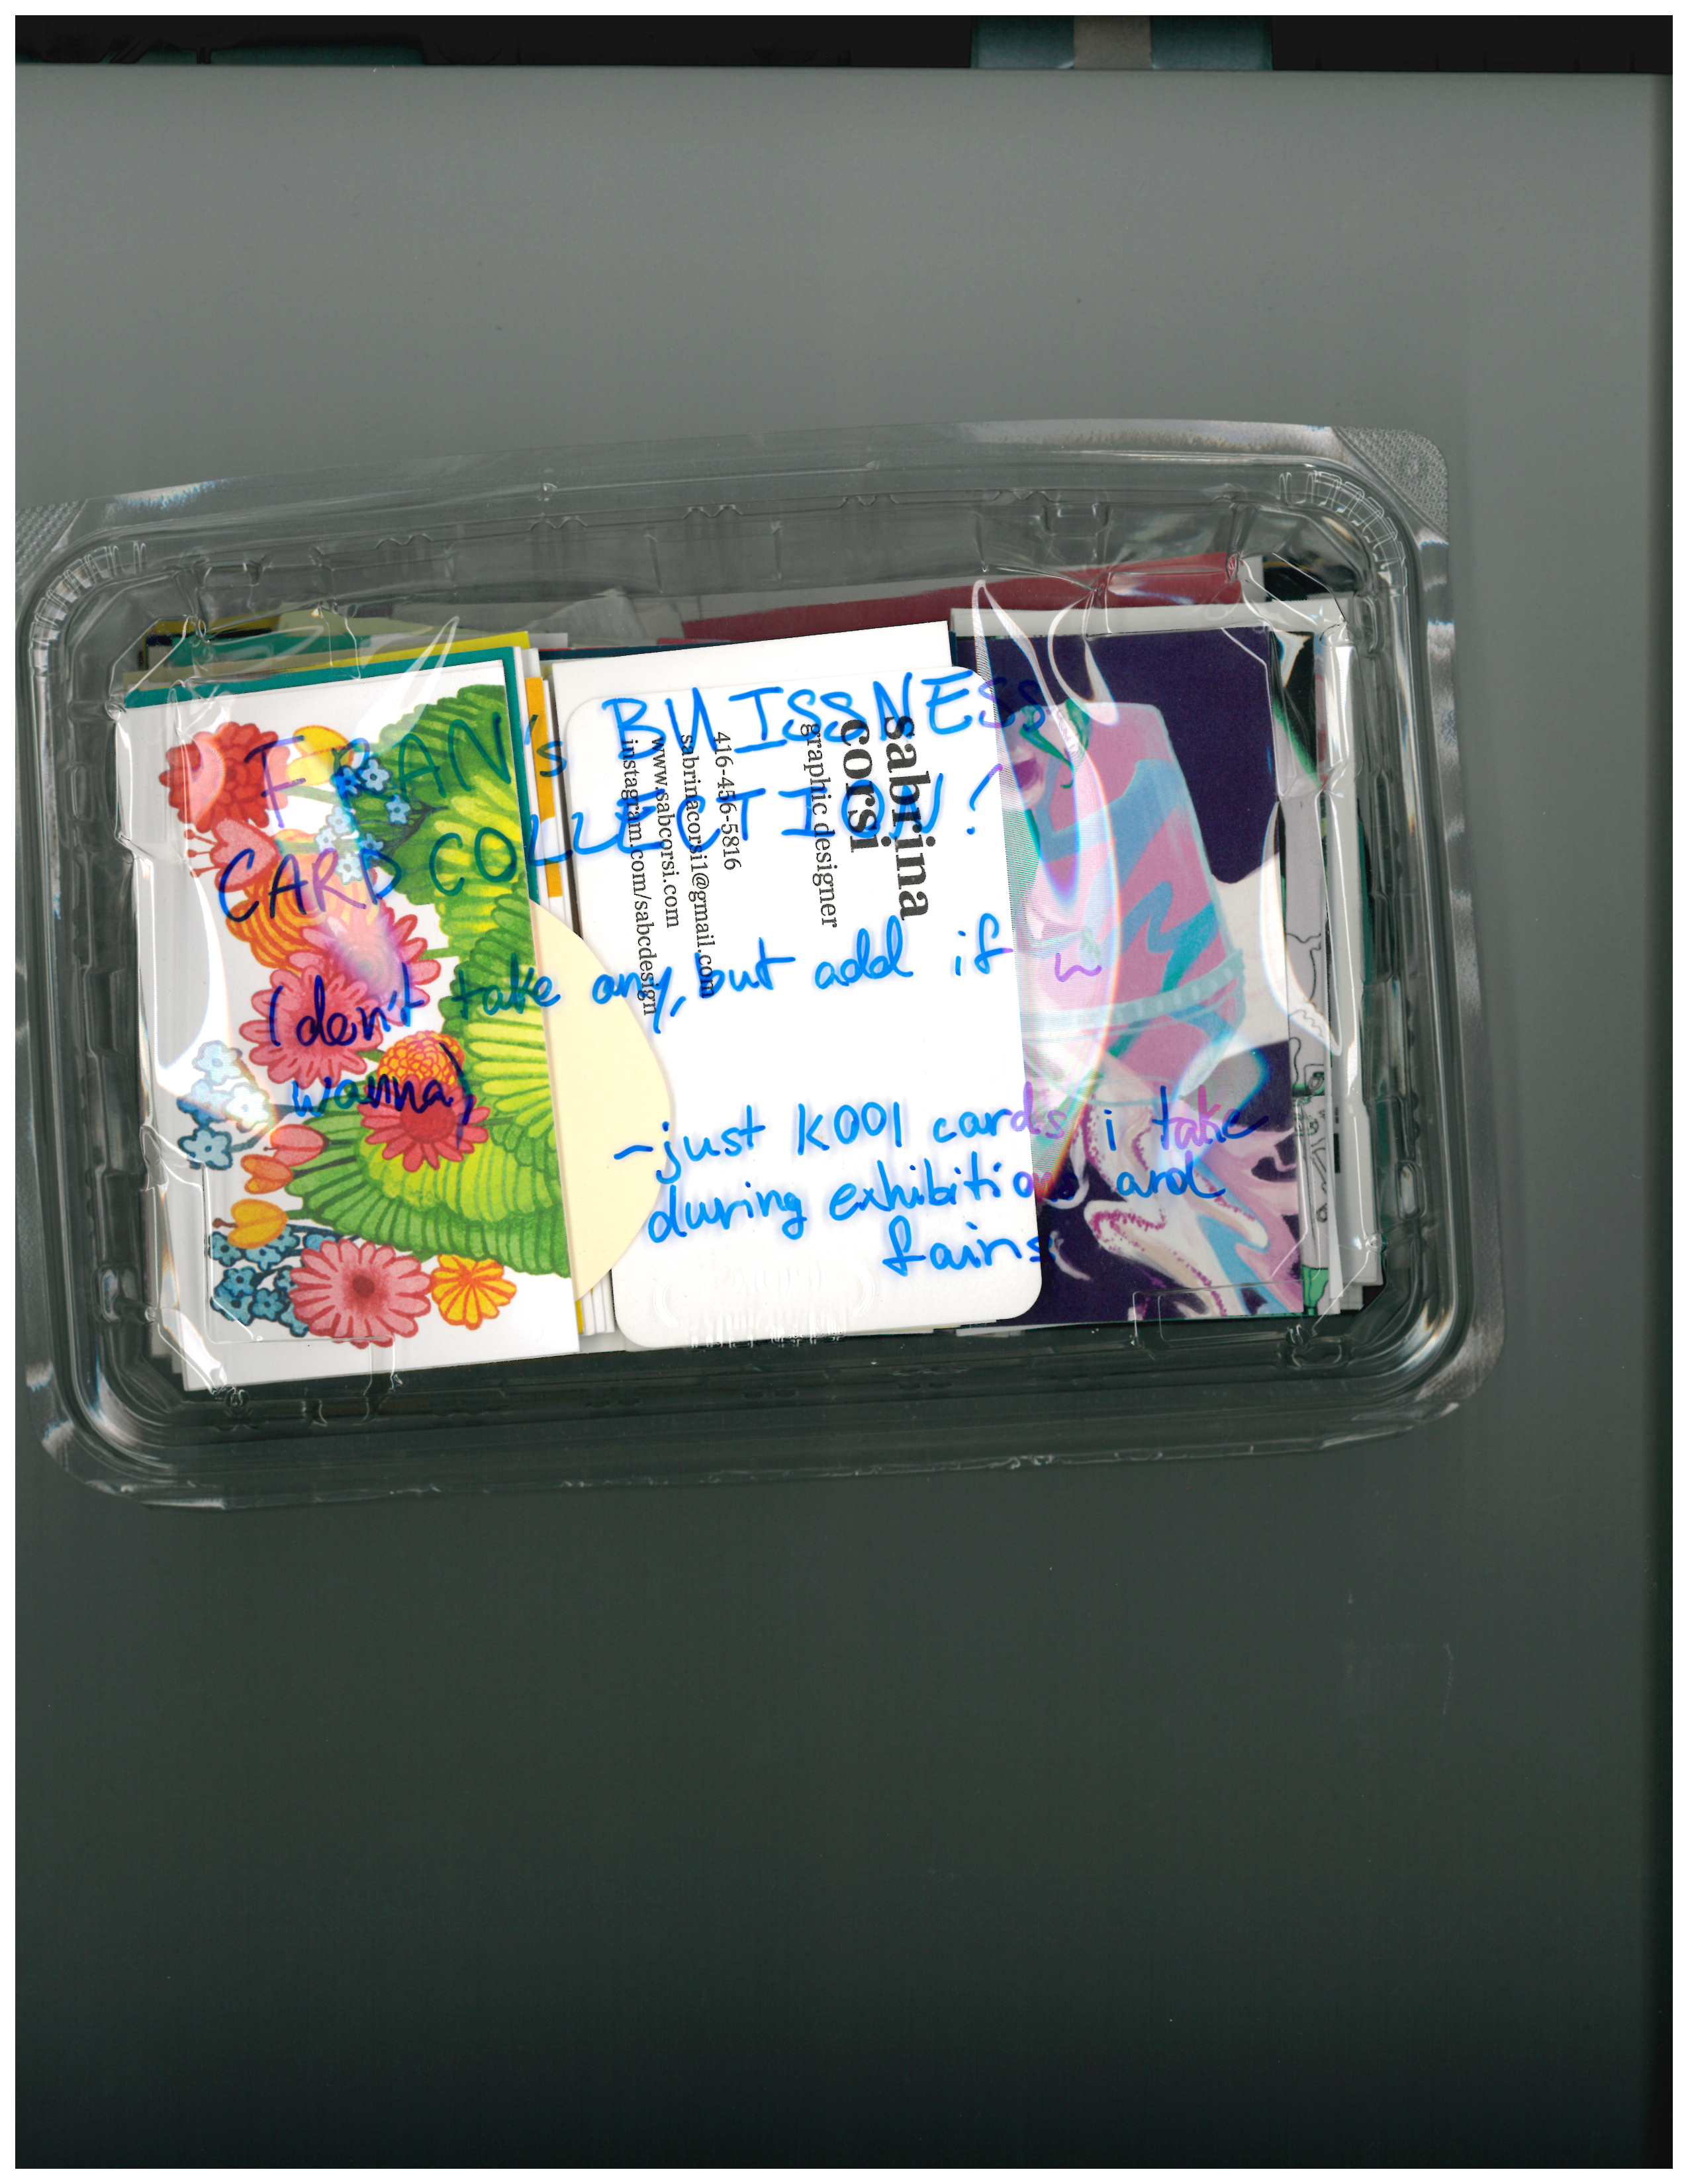 FRAN's BUISSNESS
CARD COLLECTION!
(don't take any, but add if u
wanna)
~just KOOl cards i take
during exhibitions and
fairs
sabrina
corsi
graphic designer
416-456-5816
sabrinacorsi1@gmail.com
www.sabcorsi.com
instagram.com/sabcdesign